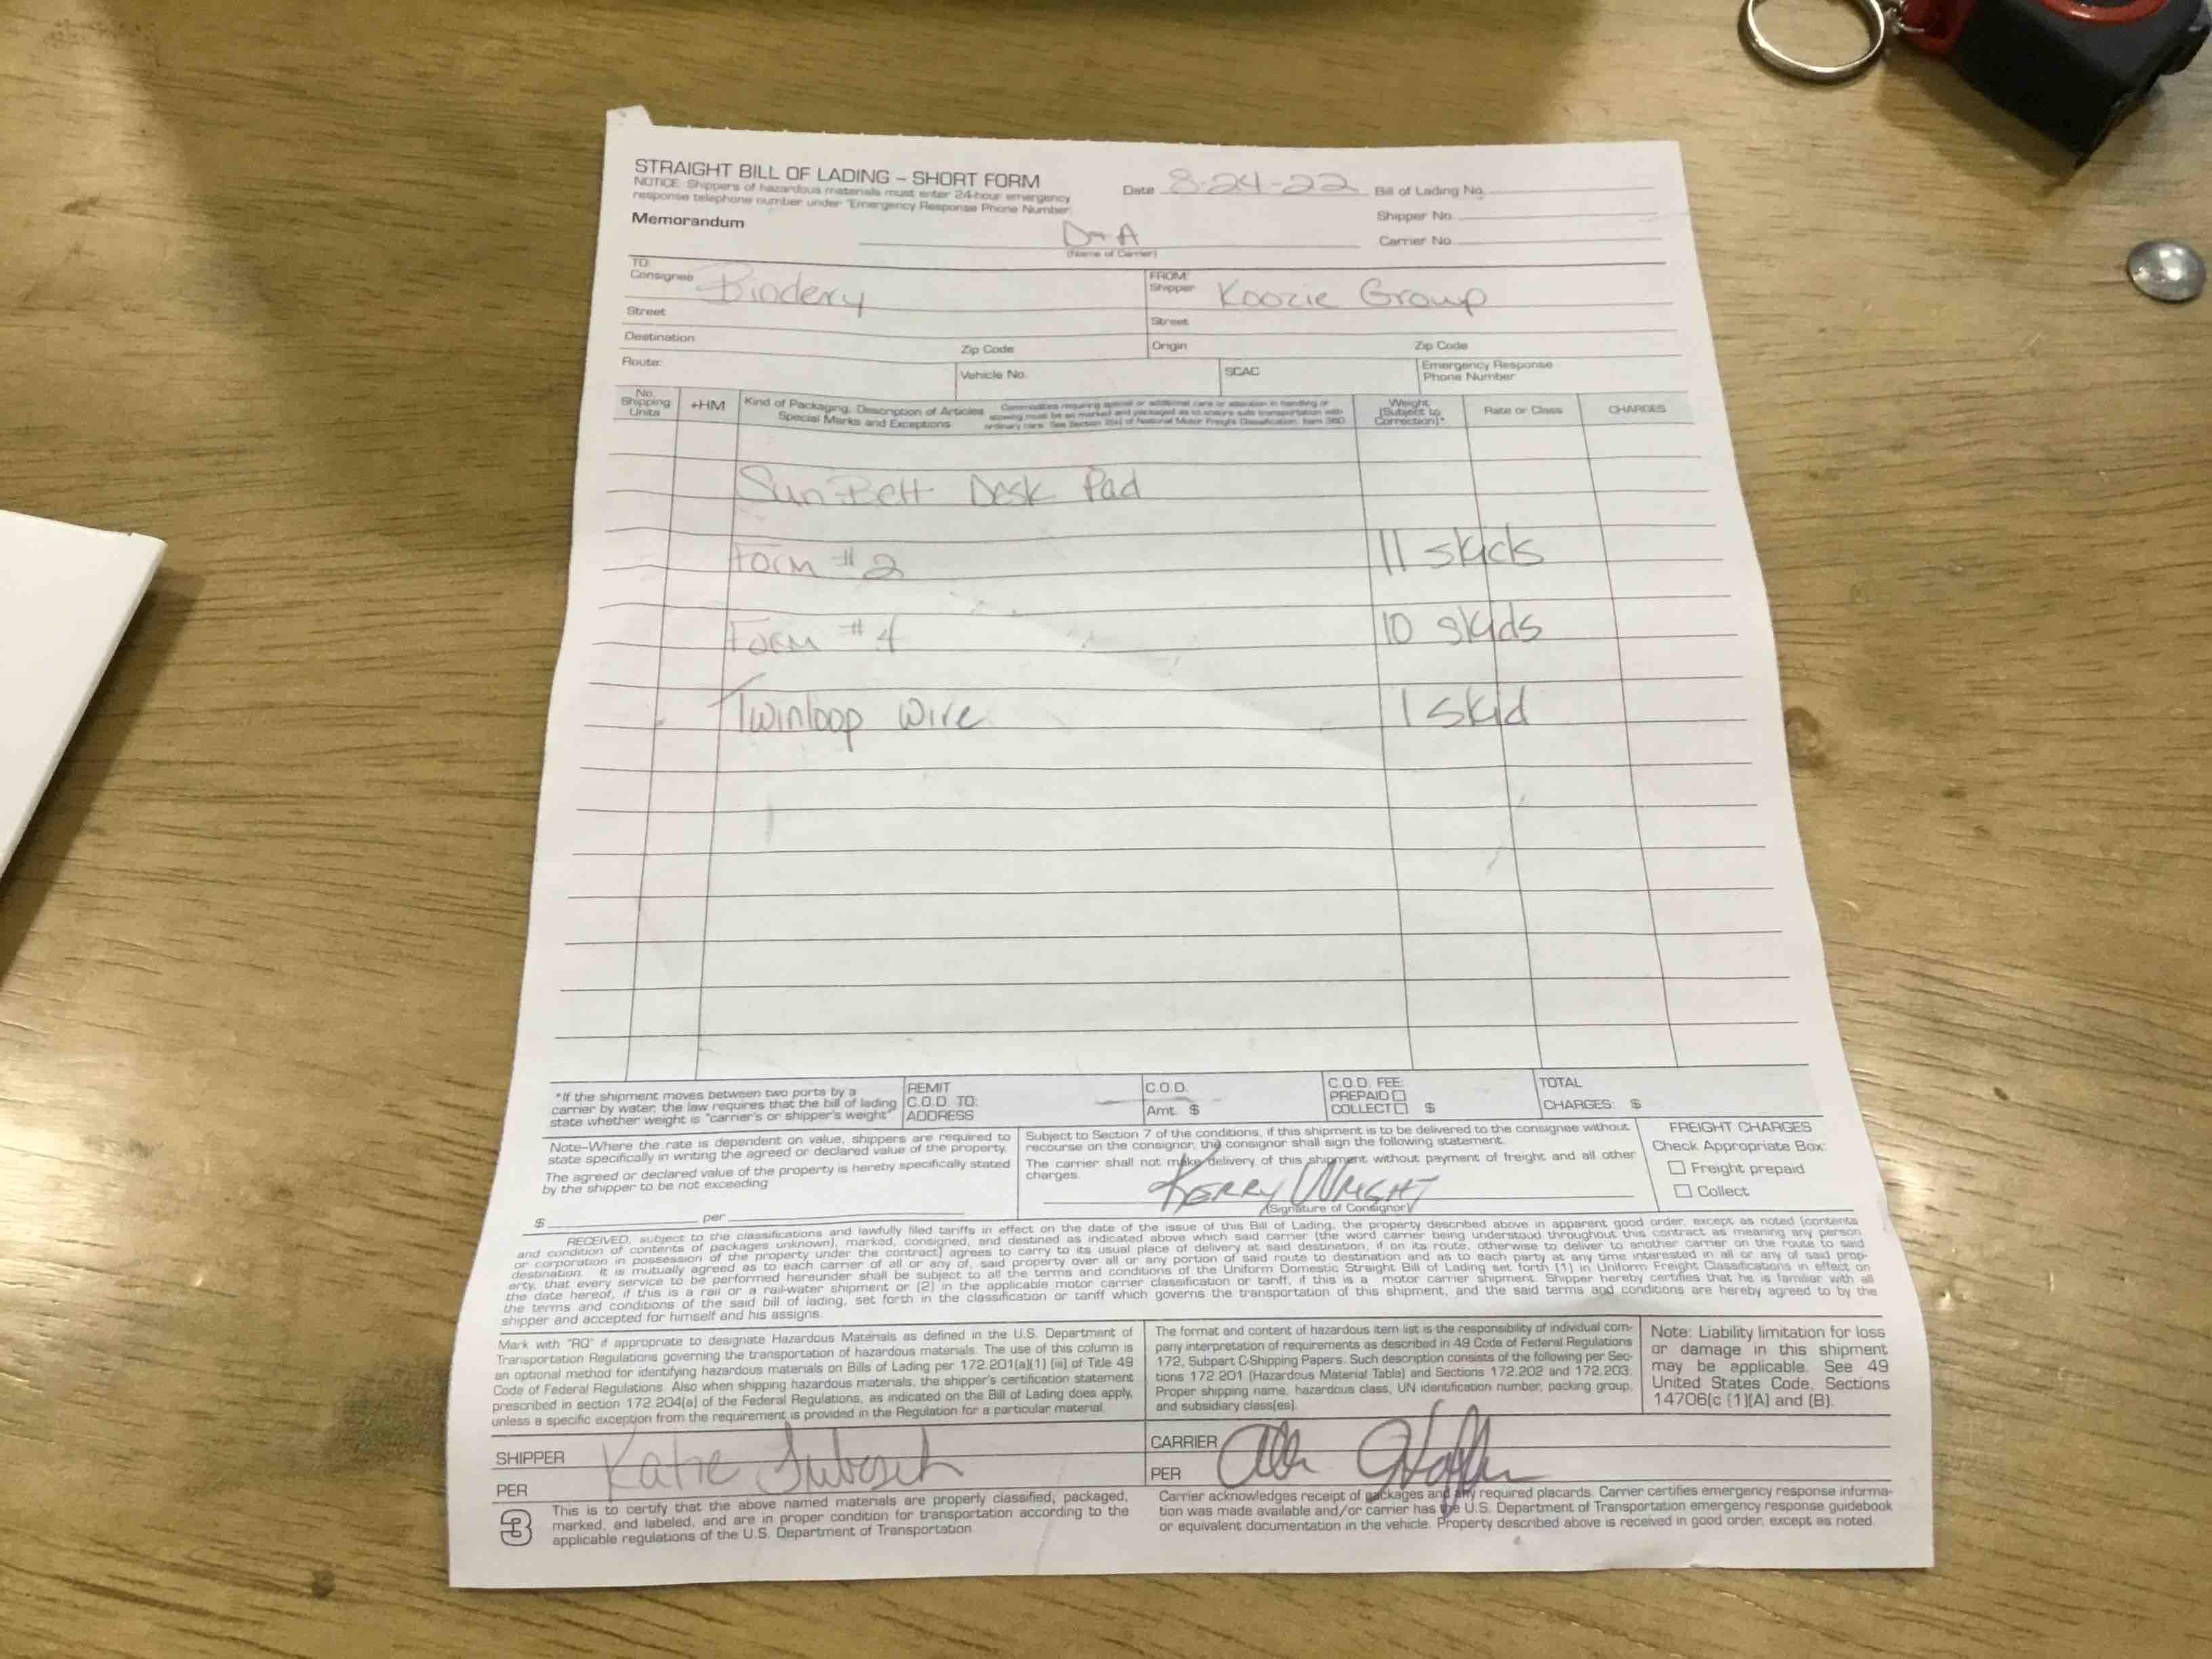 STRAIGHT BILL OF LADING – SHORT FORM
NOTICE: Shippers of hazardous materials must enter 24-hour emergency
response telephone number under "Emergency Response Phone Number.
Memorandum
Date 8-24-22 Bill of Lading No.
Shipper No.
Carrier No.
D-A
(Name of Carrier)
TO:
Consignee Bindery
FROM:
Shipper Koozie Group
Street
Street
Destination
Zip Code
Origin
Zip Code
Route:
Vehicle No.
SCAC
Emergency Response
Phone Number
No.
Shipping
Units
+HM
Kind of Packaging, Description of Articles
Special Marks and Exceptions
Commodities requiring special or additional care or attention in handling or
stowing must be so marked and packaged as to ensure safe transportation with
ordinary care. See Section 2(e) of National Motor Freight Classification, Item 360
Weight
(Subject to
Correction)*
Rate or Class
CHARGES
Sun Belt Desk Pad
Form #2 11 skids
Form #4 10 skids
Twinloop Wire 1 skid
*If the shipment moves between two ports by a
carrier by water, the law requires that the bill of lading
state whether weight is "carrier's or shipper's weight"
REMIT
C.O.D. TO:
ADDRESS
C.O.D.
Amt. $
C.O.D. FEE:
PREPAID
COLLECT $
TOTAL
CHARGES: $
Note–Where the rate is dependent on value, shippers are required to
state specifically in writing the agreed or declared value of the property.
The agreed or declared value of the property is hereby specifically stated
by the shipper to be not exceeding
$ per
Subject to Section 7 of the conditions, if this shipment is to be delivered to the consignee without
recourse on the consignor, the consignor shall sign the following statement.
The carrier shall not make delivery of this shipment without payment of freight and all other
charges.
KERRY WRIGHT
(Signature of Consignor)
FREIGHT CHARGES
Check Appropriate Box:
Freight prepaid
Collect
RECEIVED, subject to the classifications and lawfully filed tariffs in effect on the date of the issue of this Bill of Lading, the property described above in apparent good order, except as noted (contents
and condition of contents of packages unknown), marked, consigned, and destined as indicated above which said carrier (the word carrier being understood throughout this contract as meaning any person
or corporation in possession of the property under the contract) agrees to carry to its usual place of delivery at said destination, if on its route, otherwise to deliver to another carrier on the route to said
destination. It is mutually agreed as to each carrier of all or any of, said property over all or any portion of said route to destination and as to each party at any time interested in all or any of said prop-
erty, that every service to be performed hereunder shall be subject to all the terms and conditions of the Uniform Domestic Straight Bill of Lading set forth (1) in Uniform Freight Classifications in effect on
the date hereof, if this is a rail or a rail-water shipment or (2) in the applicable motor carrier classification or tariff, if this is a motor carrier shipment. Shipper hereby certifies that he is familiar with all
the terms and conditions of the said bill of lading, set forth in the classification or tariff which governs the transportation of this shipment, and the said terms and conditions are hereby agreed to by the
shipper and accepted for himself and his assigns.
Mark with "RQ" if appropriate to designate Hazardous Materials as defined in the U.S. Department of
Transportation Regulations governing the transportation of hazardous materials. The use of this column is
an optional method for identifying hazardous materials on Bills of Lading per 172.201(a)(1) (iii) of Title 49
Code of Federal Regulations. Also when shipping hazardous materials, the shipper's certification statement
prescribed in section 172.204(a) of the Federal Regulations, as indicated on the Bill of Lading does apply,
unless a specific exception from the requirement is provided in the Regulation for a particular material.
The format and content of hazardous item list is the responsibility of individual com-
pany interpretation of requirements as described in 49 Code of Federal Regulations
172, Subpart C-Shipping Papers. Such description consists of the following per Sec-
tions 172.201 (Hazardous Material Table) and Sections 172.202 and 172.203.
Proper shipping name, hazardous class, UN identification number, packing group,
and subsidiary class(es).
Note: Liability limitation for loss
or damage in this shipment
may be applicable. See 49
United States Code, Sections
14706(c (1)(A) and (B).
SHIPPER
PER
Katie
CARRIER
PER
3
This is to certify that the above named materials are properly classified, packaged,
marked, and labeled, and are in proper condition for transportation according to the
applicable regulations of the U.S. Department of Transportation.
Carrier acknowledges receipt of packages and any required placards. Carrier certifies emergency response informa-
tion was made available and/or carrier has the U.S. Department of Transportation emergency response guidebook
or equivalent documentation in the vehicle. Property described above is received in good order, except as noted.